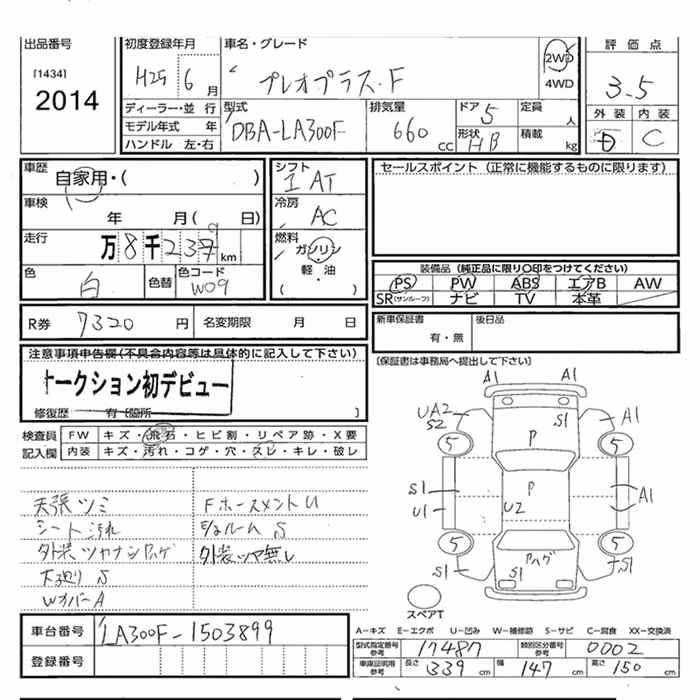 出品番号
[1434]
2014
初度登録年月
H25 6 月
車名・グレード
プレオプラス・F
2WD
4WD
評価点
3.5
ディーラー・並 行
モデル年式 年
ハンドル 左・右
型式
DBA-LA300F
排気量
660 cc
ドア 5
形状 HB
定員 人
積載 kg
外装 内装
D C
車歴
自家用・( )
車検
年 月( 日)
走行
万 8 千 237 km
色
白
色替
色コード
W09
シフト
I AT
冷房
AC
燃料
ガソリン
・
軽・油
( )
セールスポイント (正常に機能するものに限ります)
装備品 (純正品に限り○印をつけてください)
PS PW ABS エアB AW
SR(サンルーフ) ナビ TV 本革
R券 7320 円 名変期限 月 日
新車保証書
有・無
後日品
(保証書は事務局へ提出して下さい)
注意事項申告欄(不具合内容等は具体的に記入して下さい)
オークション初デビュー
修復歴 有 (箇所 )
検査員
記入欄
FW キズ・飛石・ヒビ割・リペア跡・X要
内装 キズ・汚れ・コゲ・穴・スレ・キレ・破レ
天張ツミ
シート汚れ
外装ツヤナシPハゲ
大廻りS
WカバーA
FホースメントU
外装ツヤ無し
A1
A1
UA2
S2
S1
A1
5
5
P
S1
U1
P
U2
A1
5
5
Pハゲ
S1
S1
S1
スペアT
車台番号 LA300F-1503899
登録番号
A-キズ E-エクボ U-凹み W-補修跡 S-サビ C-腐食 XX-交換済
型式指定番号
参考
17487
類別区分番号
参考
0002
車庫証明用
参考
長さ 339 cm 幅 147 cm 高さ 150 cm